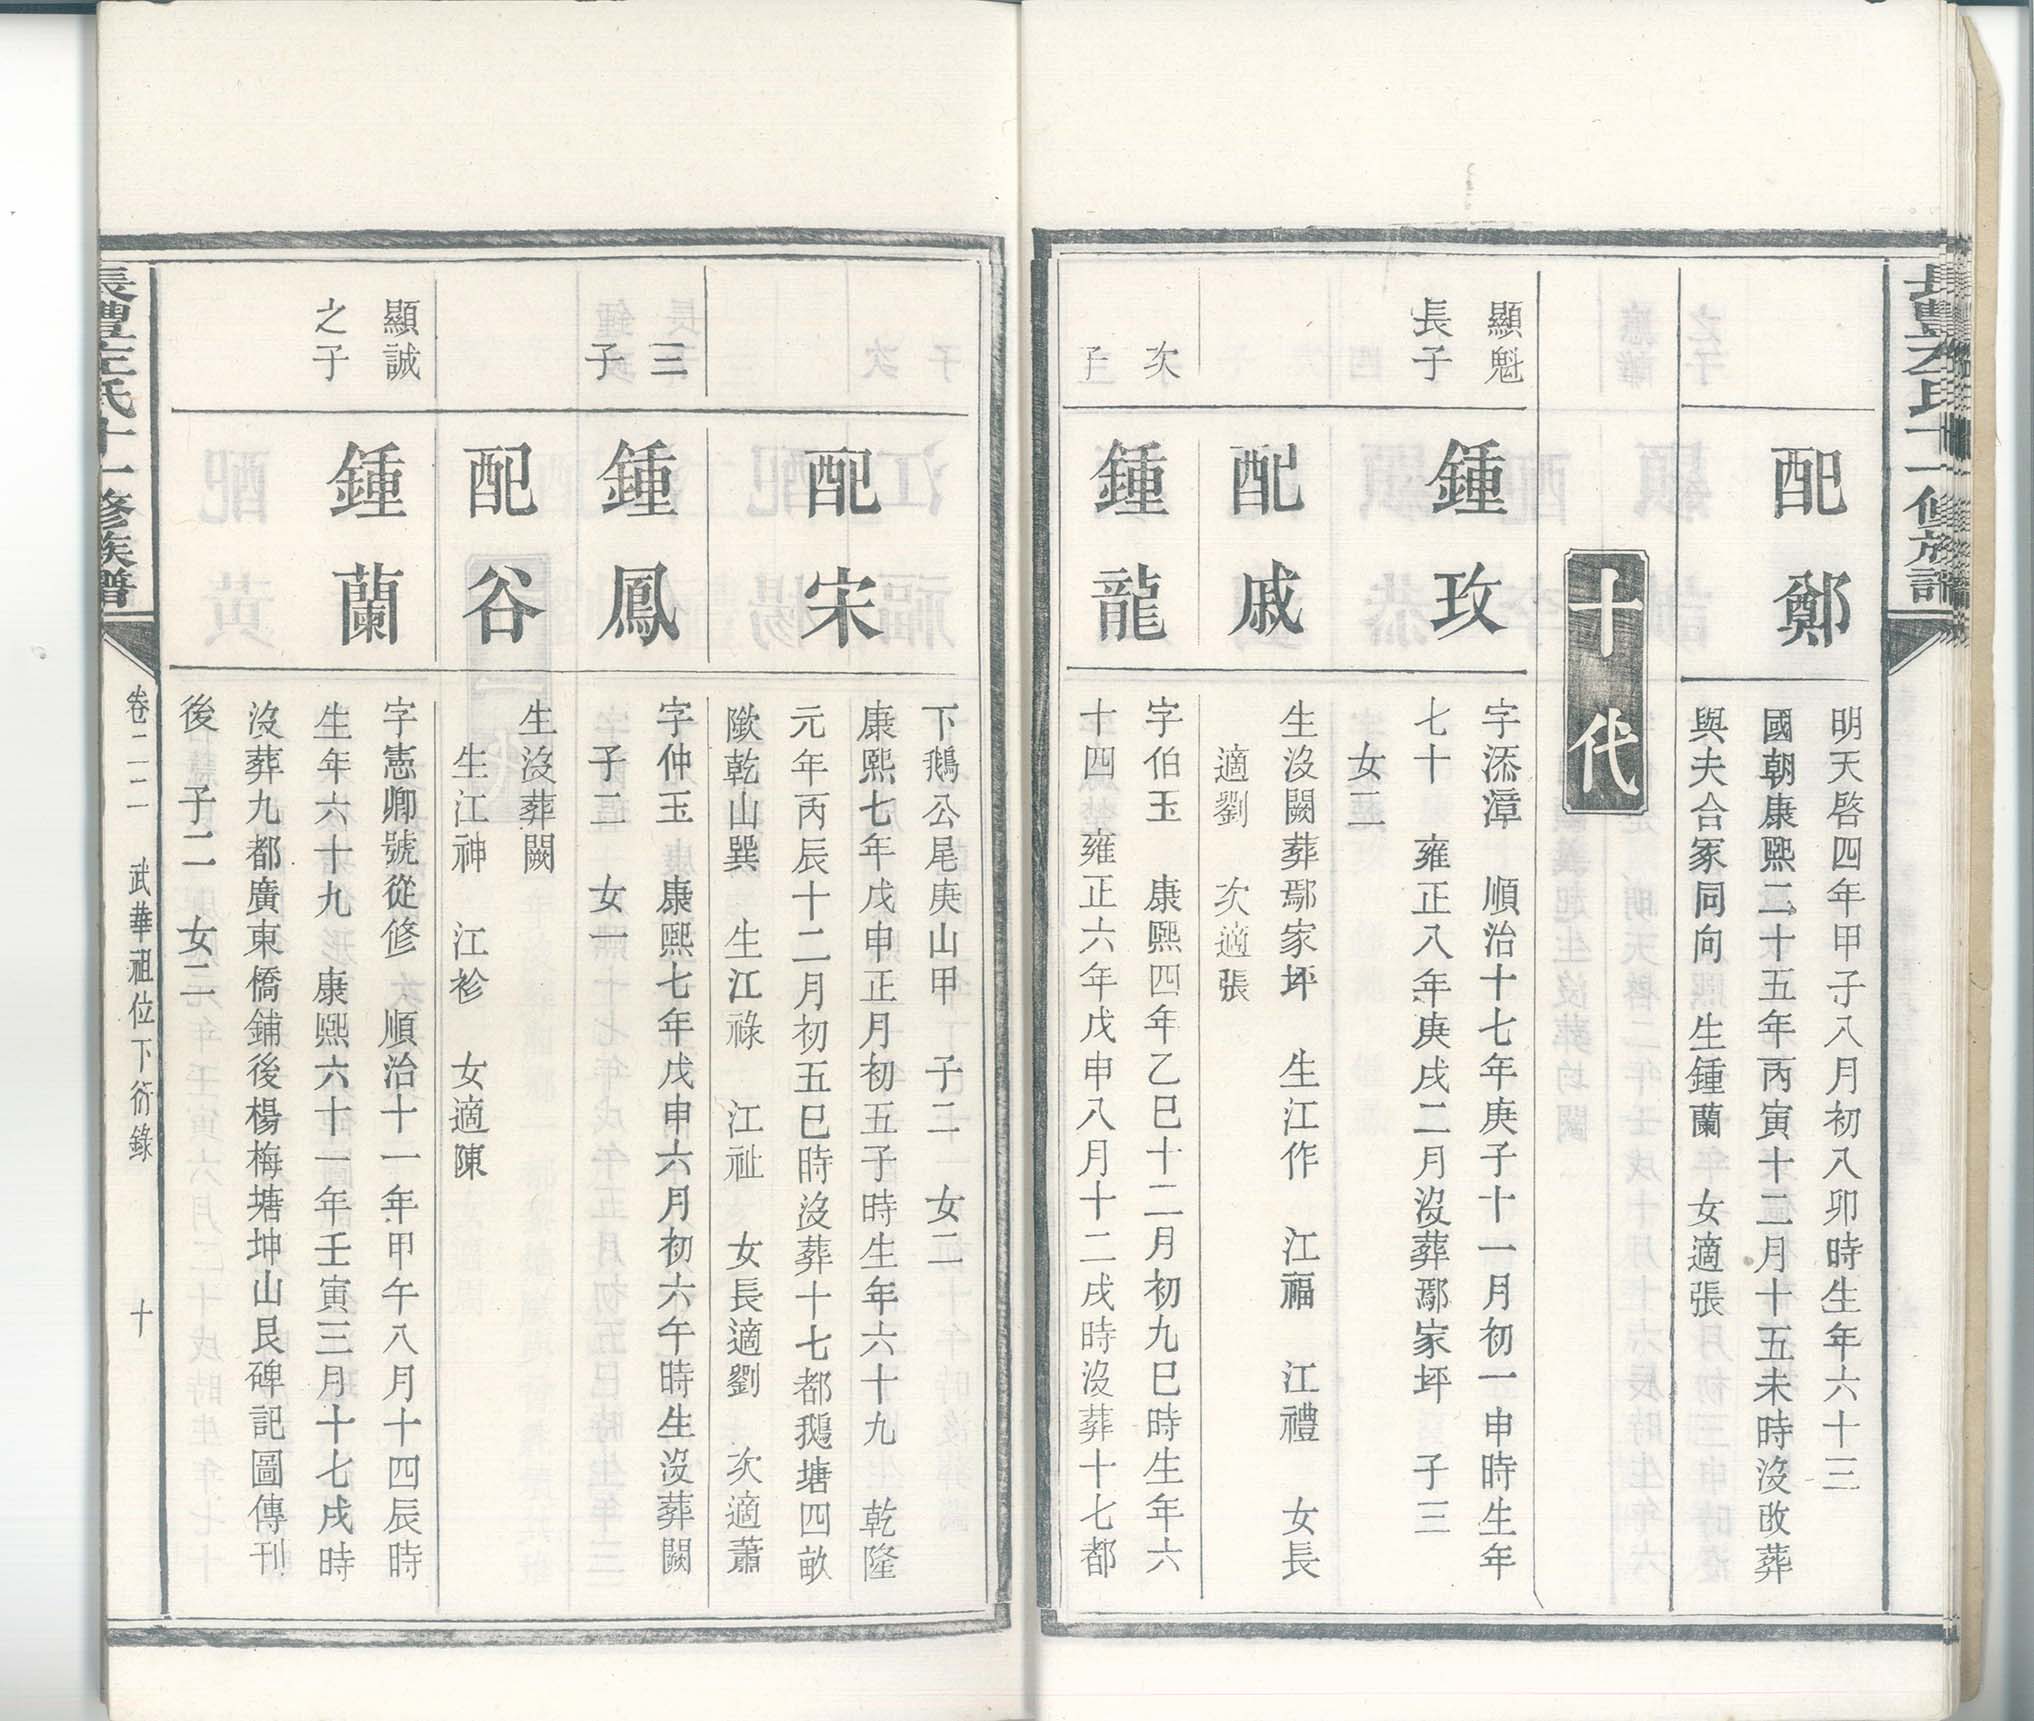 長豐左氏十一修族譜
配鄭
明天啓四年甲子八月初八卯時生年六十三
國朝康熙二十五年丙寅十二月十五未時沒改葬
與夫合冢同向　生鍾蘭　女適張
十代
顯魁
長子
鍾玫
字添漳　順治十七年庚子十一月初一申時生年
七十　雍正八年庚戌二月沒葬鄢家坪　子三
女二
配戚
生沒闕葬鄢家坪　生江作　江福　江禮　女長
適劉　次適張
次
子
鍾龍
字伯玉　康熙四年乙巳十二月初九巳時生年六
十四　雍正六年戊申八月十二戌時沒葬十七都
下鵝公尾庚山甲　子二　女二
配宋
康熙七年戊申正月初五子時生年六十九　乾隆
元年丙辰十二月初五巳時沒葬十七都鵝塘四畝
歐乾山巽　生江祿　江祉　女長適劉　次適蕭
三
子
鍾鳳
字仲玉　康熙七年戊申六月初六午時生沒葬闕
子二　女一
配谷
生沒葬闕
生江神　江袗　女適陳
顯誠
之子
鍾蘭
字憲卿號從修　順治十一年甲午八月十四辰時
生年六十九　康熙六十一年壬寅三月十七戌時
沒葬九都廣東橋鋪後楊梅塘坤山艮碑記圖傳刊
後　子二　女二
長豐左氏十一修族譜
卷二二　武華祖位下衍錄　十